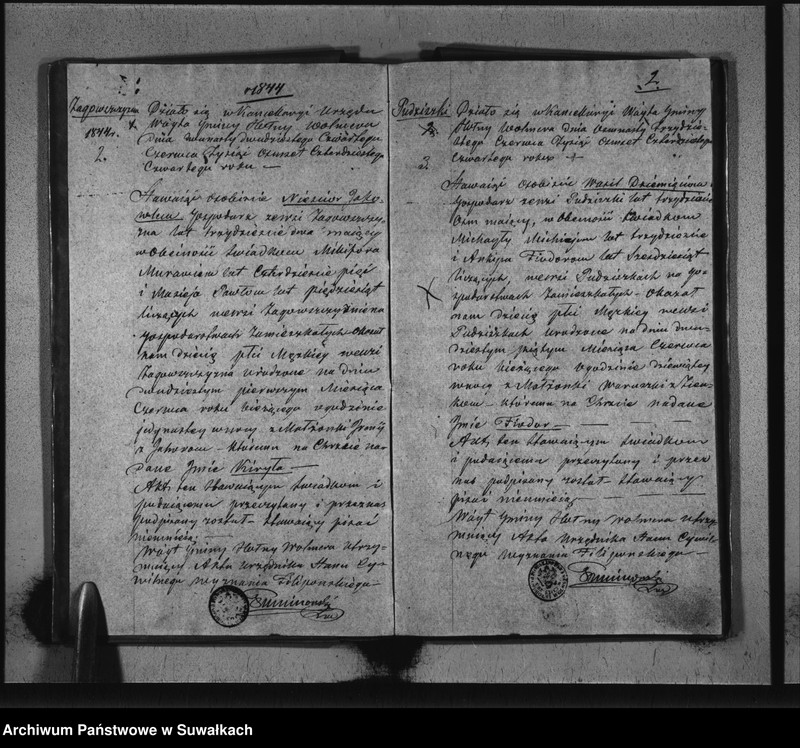 1844
Zagowszczyzna
1844r.
2.
Działo się w Kancellaryi Urzędu
Wójta Gminy Hołny Wolmera
dnia dwudziestego Czwartego
Czerwca Tysiąc Osmset Czterdziestego
Czwartego roku —
Stawaiąc osobiście
Gospodarz zewsi
lat trzydzieście dwa maiący
w Obecności Swiadkow Nikifora
lat Czterdzieście pięć
i Macieja Pawłow lat pięćdziesiąt
liczących wewsi na
Gospodarstwach Zamieszkałych okazał
nam dziecię płci Męzkiey wewsi
urodzone na dniu
dwudziestym pierwszym Miesiąca
Czerwca roku bieżącego o godzinie
jedynastey w nocy z Małżonki Ireny
z — któremu na Chrzcie na-
dane Imie Kiryło —
Akt ten Stawaiącym Swiadkom i
podaiącemu przeczytany i przez nas
podpisany został — Stawaiący pisać
nieumieią —
Wóyt Gminy Hołny Wolmera utrzy-
muiący Akta Urzędnika Stanu Cy-
wilnego Wyznania Filiponskiego —
2.
Pudziszki
3.
Działo się w Kancellaryi Wóyta Gminy
Hołny Wolmera dnia trzydzie-
stego Czerwca Tysiąc Osmset Czterdziestego
Czwartego roku —
Stawaiąc osobiście Wasil
Gospodarz zewsi Pudziszki lat trzydzieście
Osm maiący, w Obecności Swiadkow
Michayły lat trzydzieście
i Fiodorow lat Sześćdziesiąt
liczących, wewsi Pudziszkach na go-
spodarstwach Zamieszkałych — Okazał
nam dziecię płci Męzkiey wewsi
Pudziszkach urodzone na dniu dwu-
dziestym piątym Miesiąca Czerwca
roku bieżącego o godzinie dziewiątey
w nocy z Małżonki z
— któremu na Chrzcie nadane
Imie Fiodor —
Akt ten Stawaiącym Swiadkom
i podaiącemu przeczytany i przez
nas podpisany został Stawaiący
pisać nieumieią —
Wóyt Gminy Hołny Wolmera utrzy-
muiący Akta Urzędnika Stanu Cywil-
nego Wyznania Filiponskiego —
Archiwum Państwowe w Suwałkach